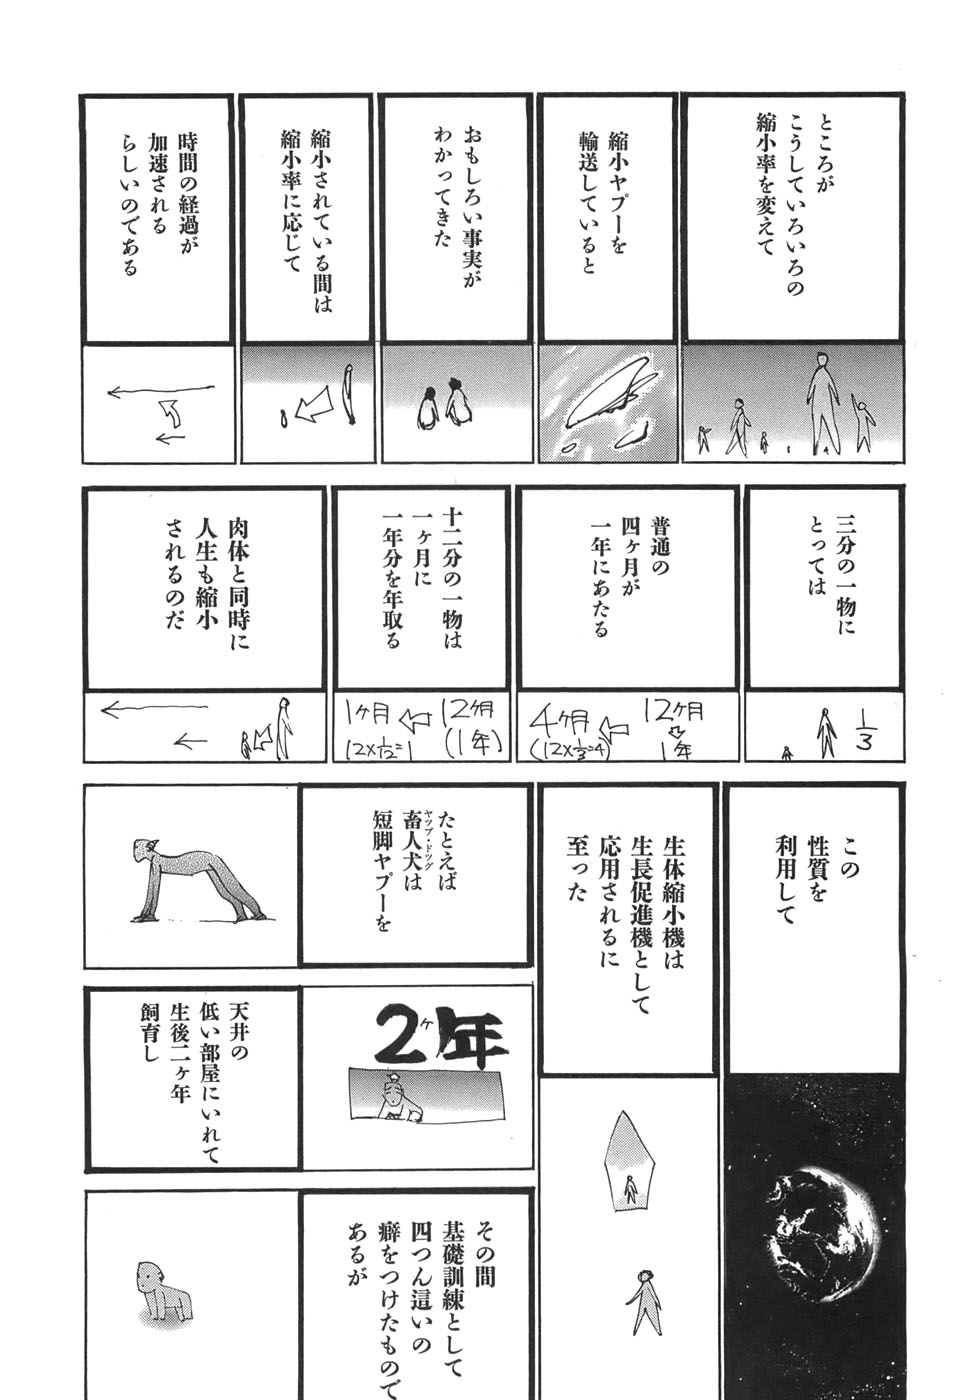 ところが
こうしていろいろの
縮小率を変えて
縮小ヤプーを
輸送していると
おもしろい事実が
わかってきた
縮小されている間は
縮小率に応じて
時間の経過が
加速される
らしいのである
三分の一物に
とっては
1/3
普通の
四ヶ月が
一年にあたる
12ヶ月
1年
4ヶ月
(12×1/3=4)
十二分の一物は
一ヶ月に
一年分を年取る
12ヶ月
(1年)
1ヶ月
(12×1/12=1
肉体と同時に
人生も縮小
されるのだ
この
性質を
利用して
生体縮小機は
生長促進機として
応用されるに
至った
たとえば
畜人犬は
ヤップ・ドッグ
短脚ヤプーを
2ヶ年
天井の
低い部屋にいれて
生後二ヶ年
飼育し
その間
基礎訓練として
四つん這いの
癖をつけたもので
あるが